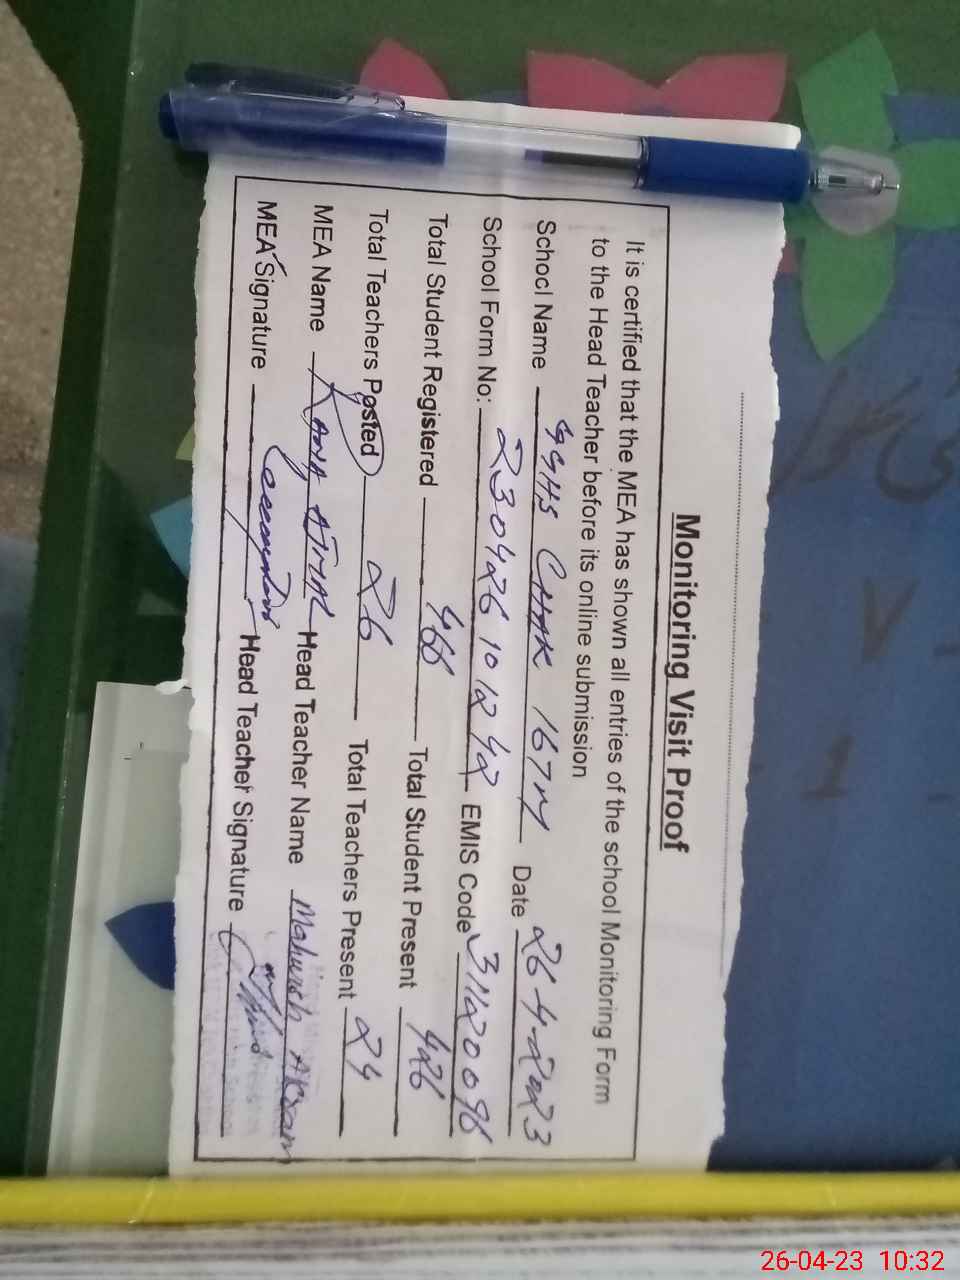 Monitoring Visit Proof
It is certified that the MEA has shown all entries of the school Monitoring Form
to the Head Teacher before its online submission
School Name GGHS CHAK 167M Date 26-4-2023
School Form No: 230426101242 EMIS Code 31120096
Total Student Registered 466 Total Student Present 426
Total Teachers Posted 26 Total Teachers Present 24
MEA Name Head Teacher Name Mahwish
MEA Signature Head Teacher Signature
26-04-23 10:32